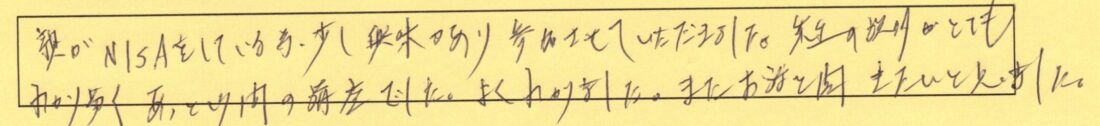 親がNISAをしている為、少し興味があり参加させていただきました。先生の説明がとても
わかり易く、あっという間の講座でした。よくわかりました。またお話を聞きたいと思いました。